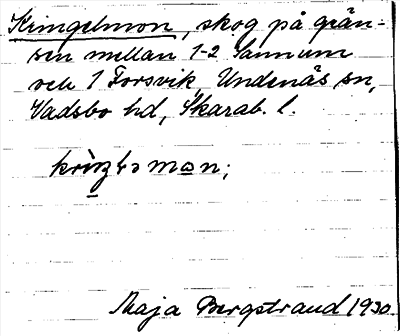 Kringelmon, skog på grän-
sen mellan 1-2 Sannum
och 1 Forsvik, Undenäs sn,
Vadsbo hd, Skarab. l.
Maja Bergstrand 1930.